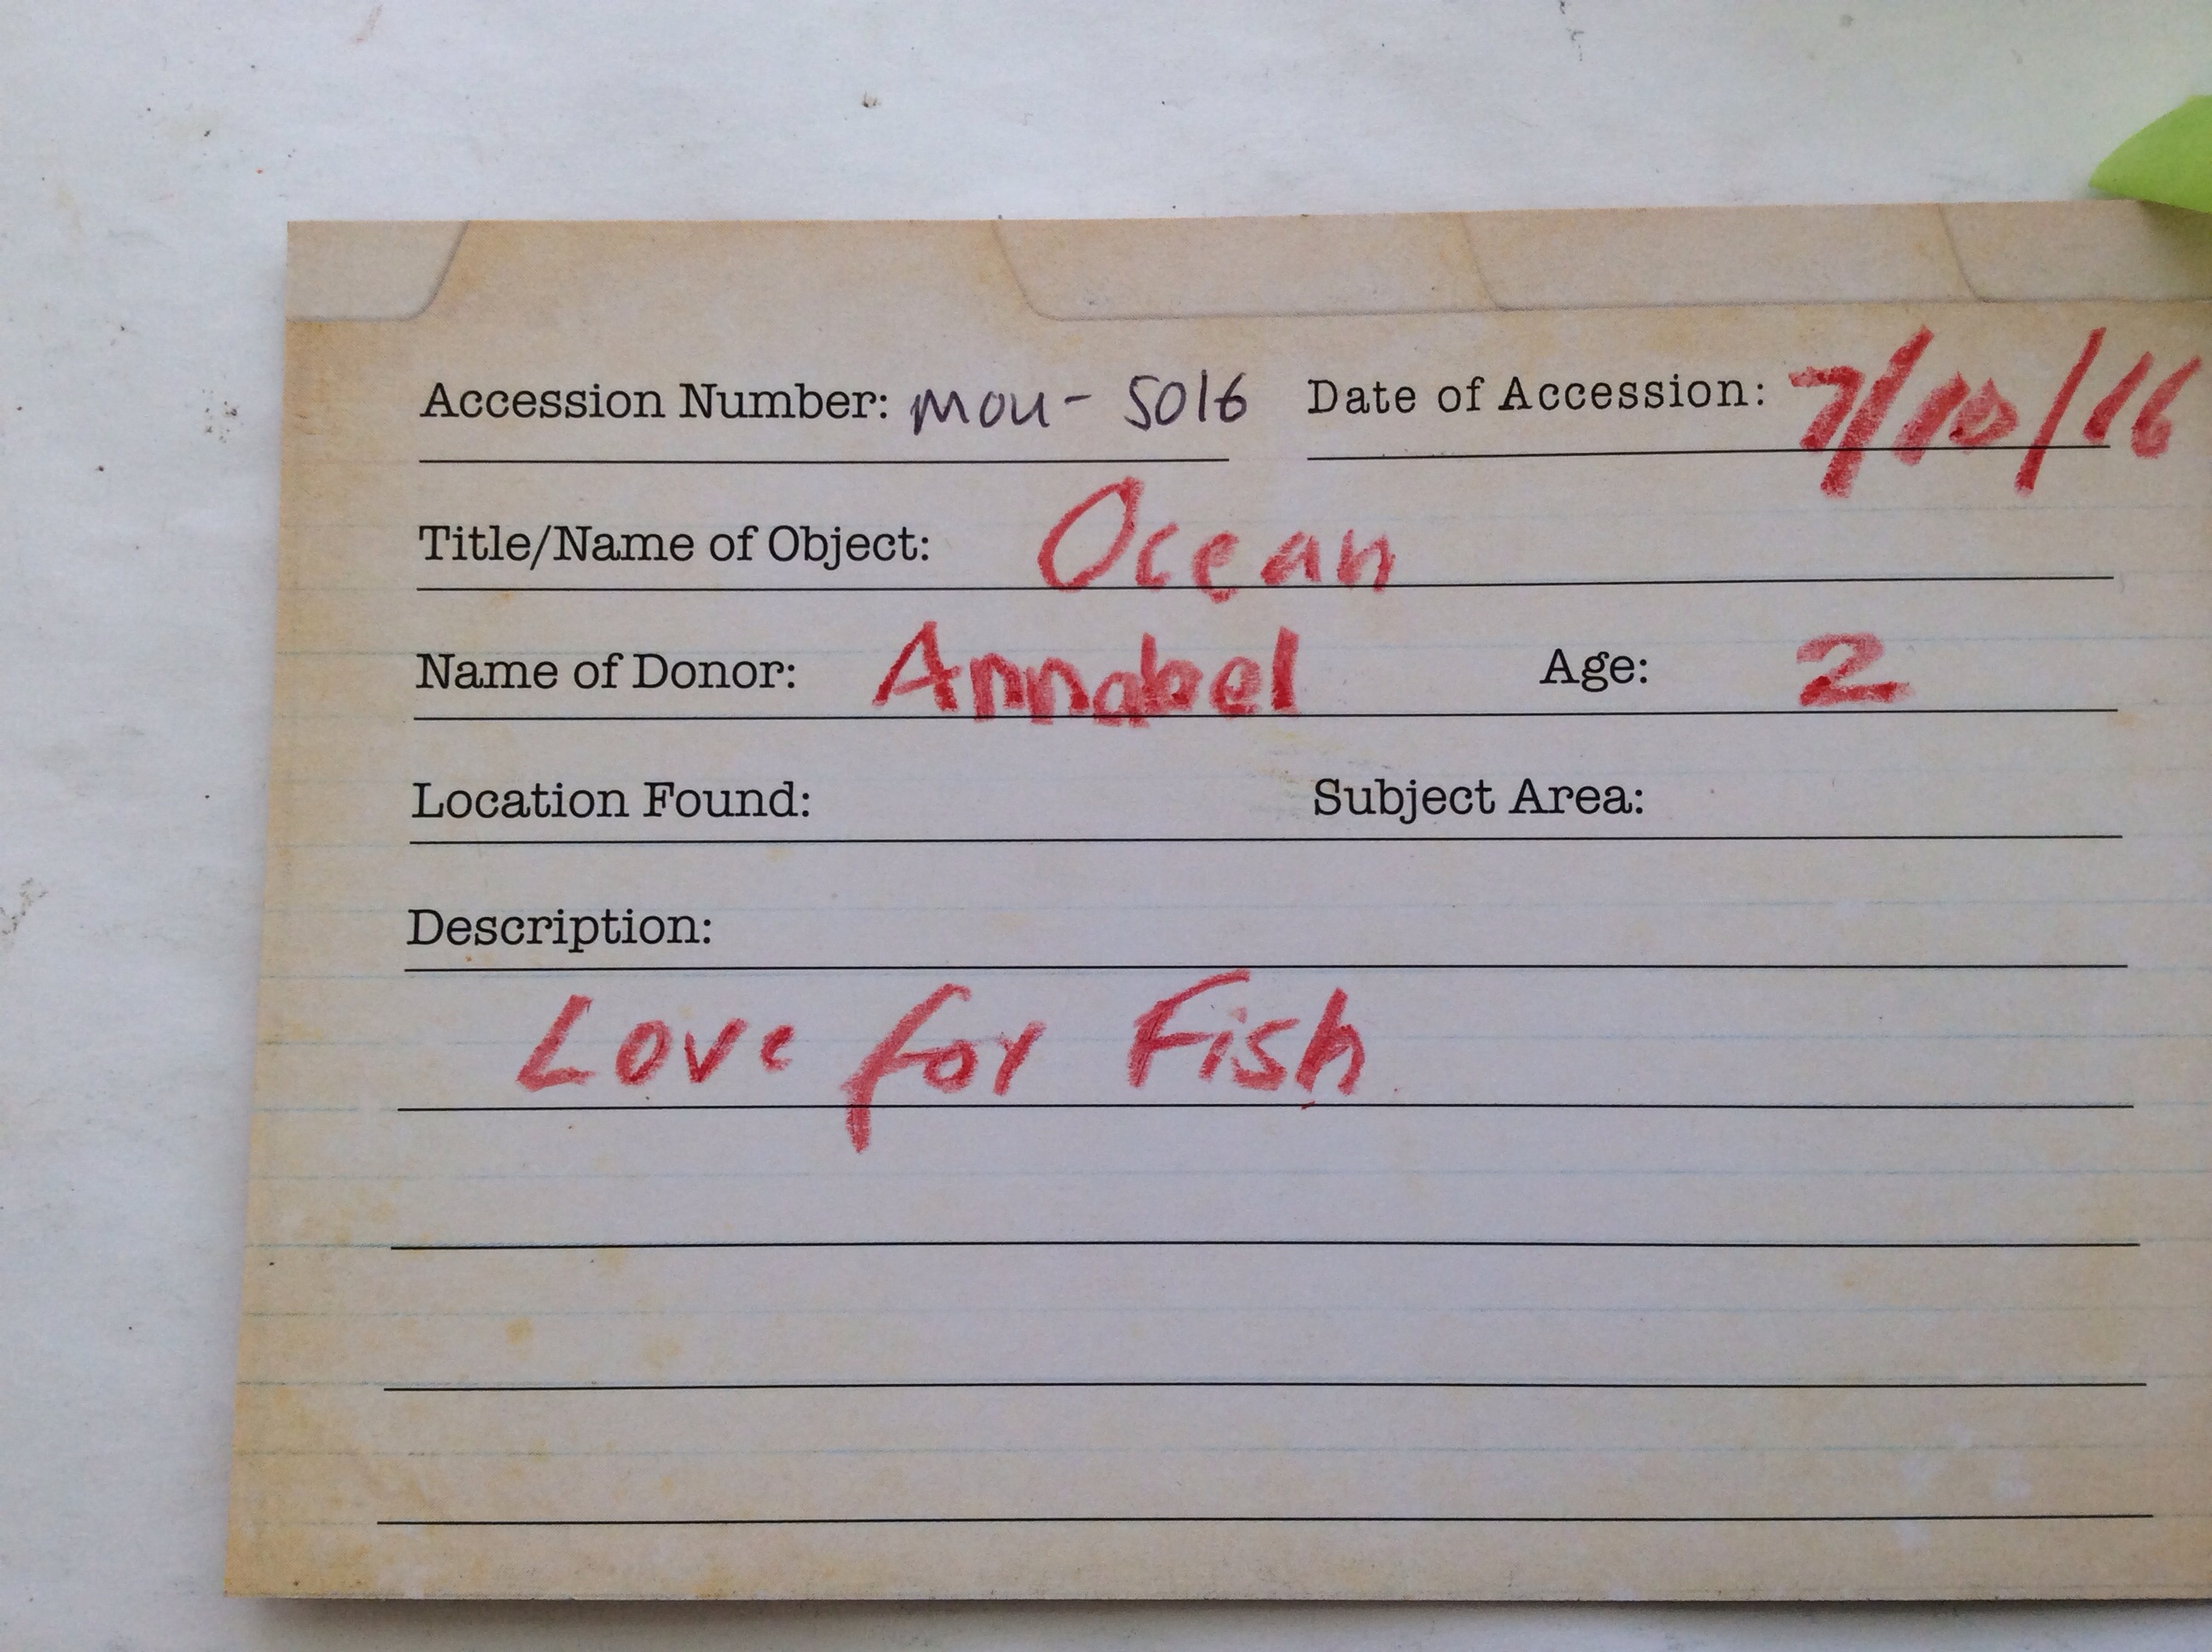 Accession Number: MOU - 5016 Date of Accession: 7/10/16
Title/Name of Object: Ocean
Name of Donor: Annabel Age: 2
Location Found: Subject Area:
Description:
Love for Fish